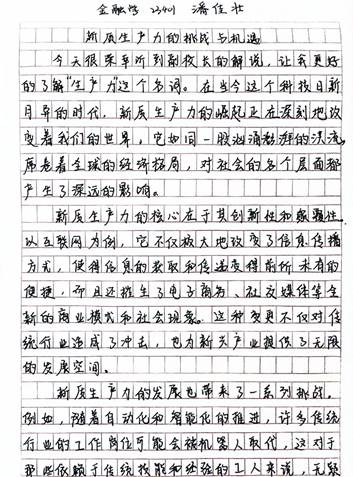 金融学 2341 潘佳壮
新质生产力的挑战与机遇
今天很荣幸听到副校长的解说，让我更好
的了解"生产力"这个名词。在当今这个科技日新
月异的时代，新质生产力的崛起正在深刻地改
变着我们的世界，它如同一股汹涌澎湃的洪流，
席卷着全球的经济格局，对社会的各个层面都
产生了深远的影响。
新质生产力的核心在于其创新性和颠覆性。
以互联网为例，它不仅极大地改变了信息传播
方式，使得信息的获取和传递变得前所未有的
便捷，而且还催生了电子商务、社交媒体等全
新的商业模式和社会现象。这种变更不仅对传
统行业造成了冲击，也为新兴产业提供了无限
的发展空间。
新质生产力的发展也带来了一系列挑战。
例如，随着自动化和智能化的推进，许多传统
行业的工作岗位可能会被机器人取代，这对于
那些依赖于传统技能和经验的工人来说，无疑